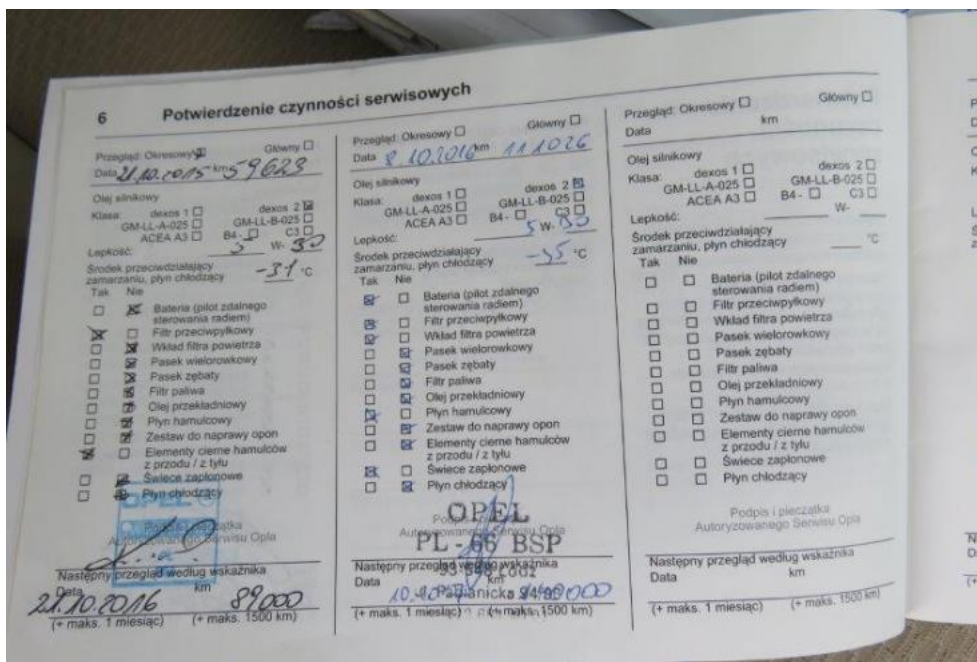 6 Potwierdzenie czynności serwisowych
Przegląd: Okresowy Główny
Data 21.10.2015 km 59623
Olej silnikowy
Klasa: dexos 1 dexos 2
GM-LL-A-025 GM-LL-B-025
ACEA A3 B4 - C3
Lepkość: 5 W- 30
Środek przeciwdziałający
zamarzaniu, płyn chłodzący -31 °C
Tak Nie
Bateria (pilot zdalnego
sterowania radiem)
Filtr przeciwpyłkowy
Wkład filtra powietrza
Pasek wielorowkowy
Pasek zębaty
Filtr paliwa
Olej przekładniowy
Płyn hamulcowy
Zestaw do naprawy opon
Elementy cierne hamulców
z przodu / z tyłu
Świece zapłonowe
Płyn chłodzący
OPEL
Serwisu Opla
Następny przegląd według wskaźnika
Data km
21.10.2016 89000
(+ maks. 1 miesiąc) (+ maks. 1500 km)
Przegląd: Okresowy Główny
Data 8.10.2016 km 111026
Olej silnikowy
Klasa: dexos 1 dexos 2
GM-LL-A-025 GM-LL-B-025
ACEA A3 B4 - C3
Lepkość: 5 W- 30
Środek przeciwdziałający
zamarzaniu, płyn chłodzący -35 °C
Tak Nie
Bateria (pilot zdalnego
sterowania radiem)
Filtr przeciwpyłkowy
Wkład filtra powietrza
Pasek wielorowkowy
Pasek zębaty
Filtr paliwa
Olej przekładniowy
Płyn hamulcowy
Zestaw do naprawy opon
Elementy cierne hamulców
z przodu / z tyłu
Świece zapłonowe
Płyn chłodzący
OPEL
Autoryzowanego Serwisu Opla
PL - 66 BSP
Następny przegląd według wskaźnika
Data km
Pabianicka
(+ maks. 1 miesiąc) (+ maks. 1500 km)
Przegląd: Okresowy Główny
Data km
Olej silnikowy
Klasa: dexos 1 dexos 2
GM-LL-A-025 GM-LL-B-025
ACEA A3 B4 - C3
Lepkość: W-
Środek przeciwdziałający
zamarzaniu, płyn chłodzący °C
Tak Nie
Bateria (pilot zdalnego
sterowania radiem)
Filtr przeciwpyłkowy
Wkład filtra powietrza
Pasek wielorowkowy
Pasek zębaty
Filtr paliwa
Olej przekładniowy
Płyn hamulcowy
Zestaw do naprawy opon
Elementy cierne hamulców
z przodu / z tyłu
Świece zapłonowe
Płyn chłodzący
Podpis i pieczątka
Autoryzowanego Serwisu Opla
Następny przegląd według wskaźnika
Data km
(+ maks. 1 miesiąc) (+ maks. 1500 km)